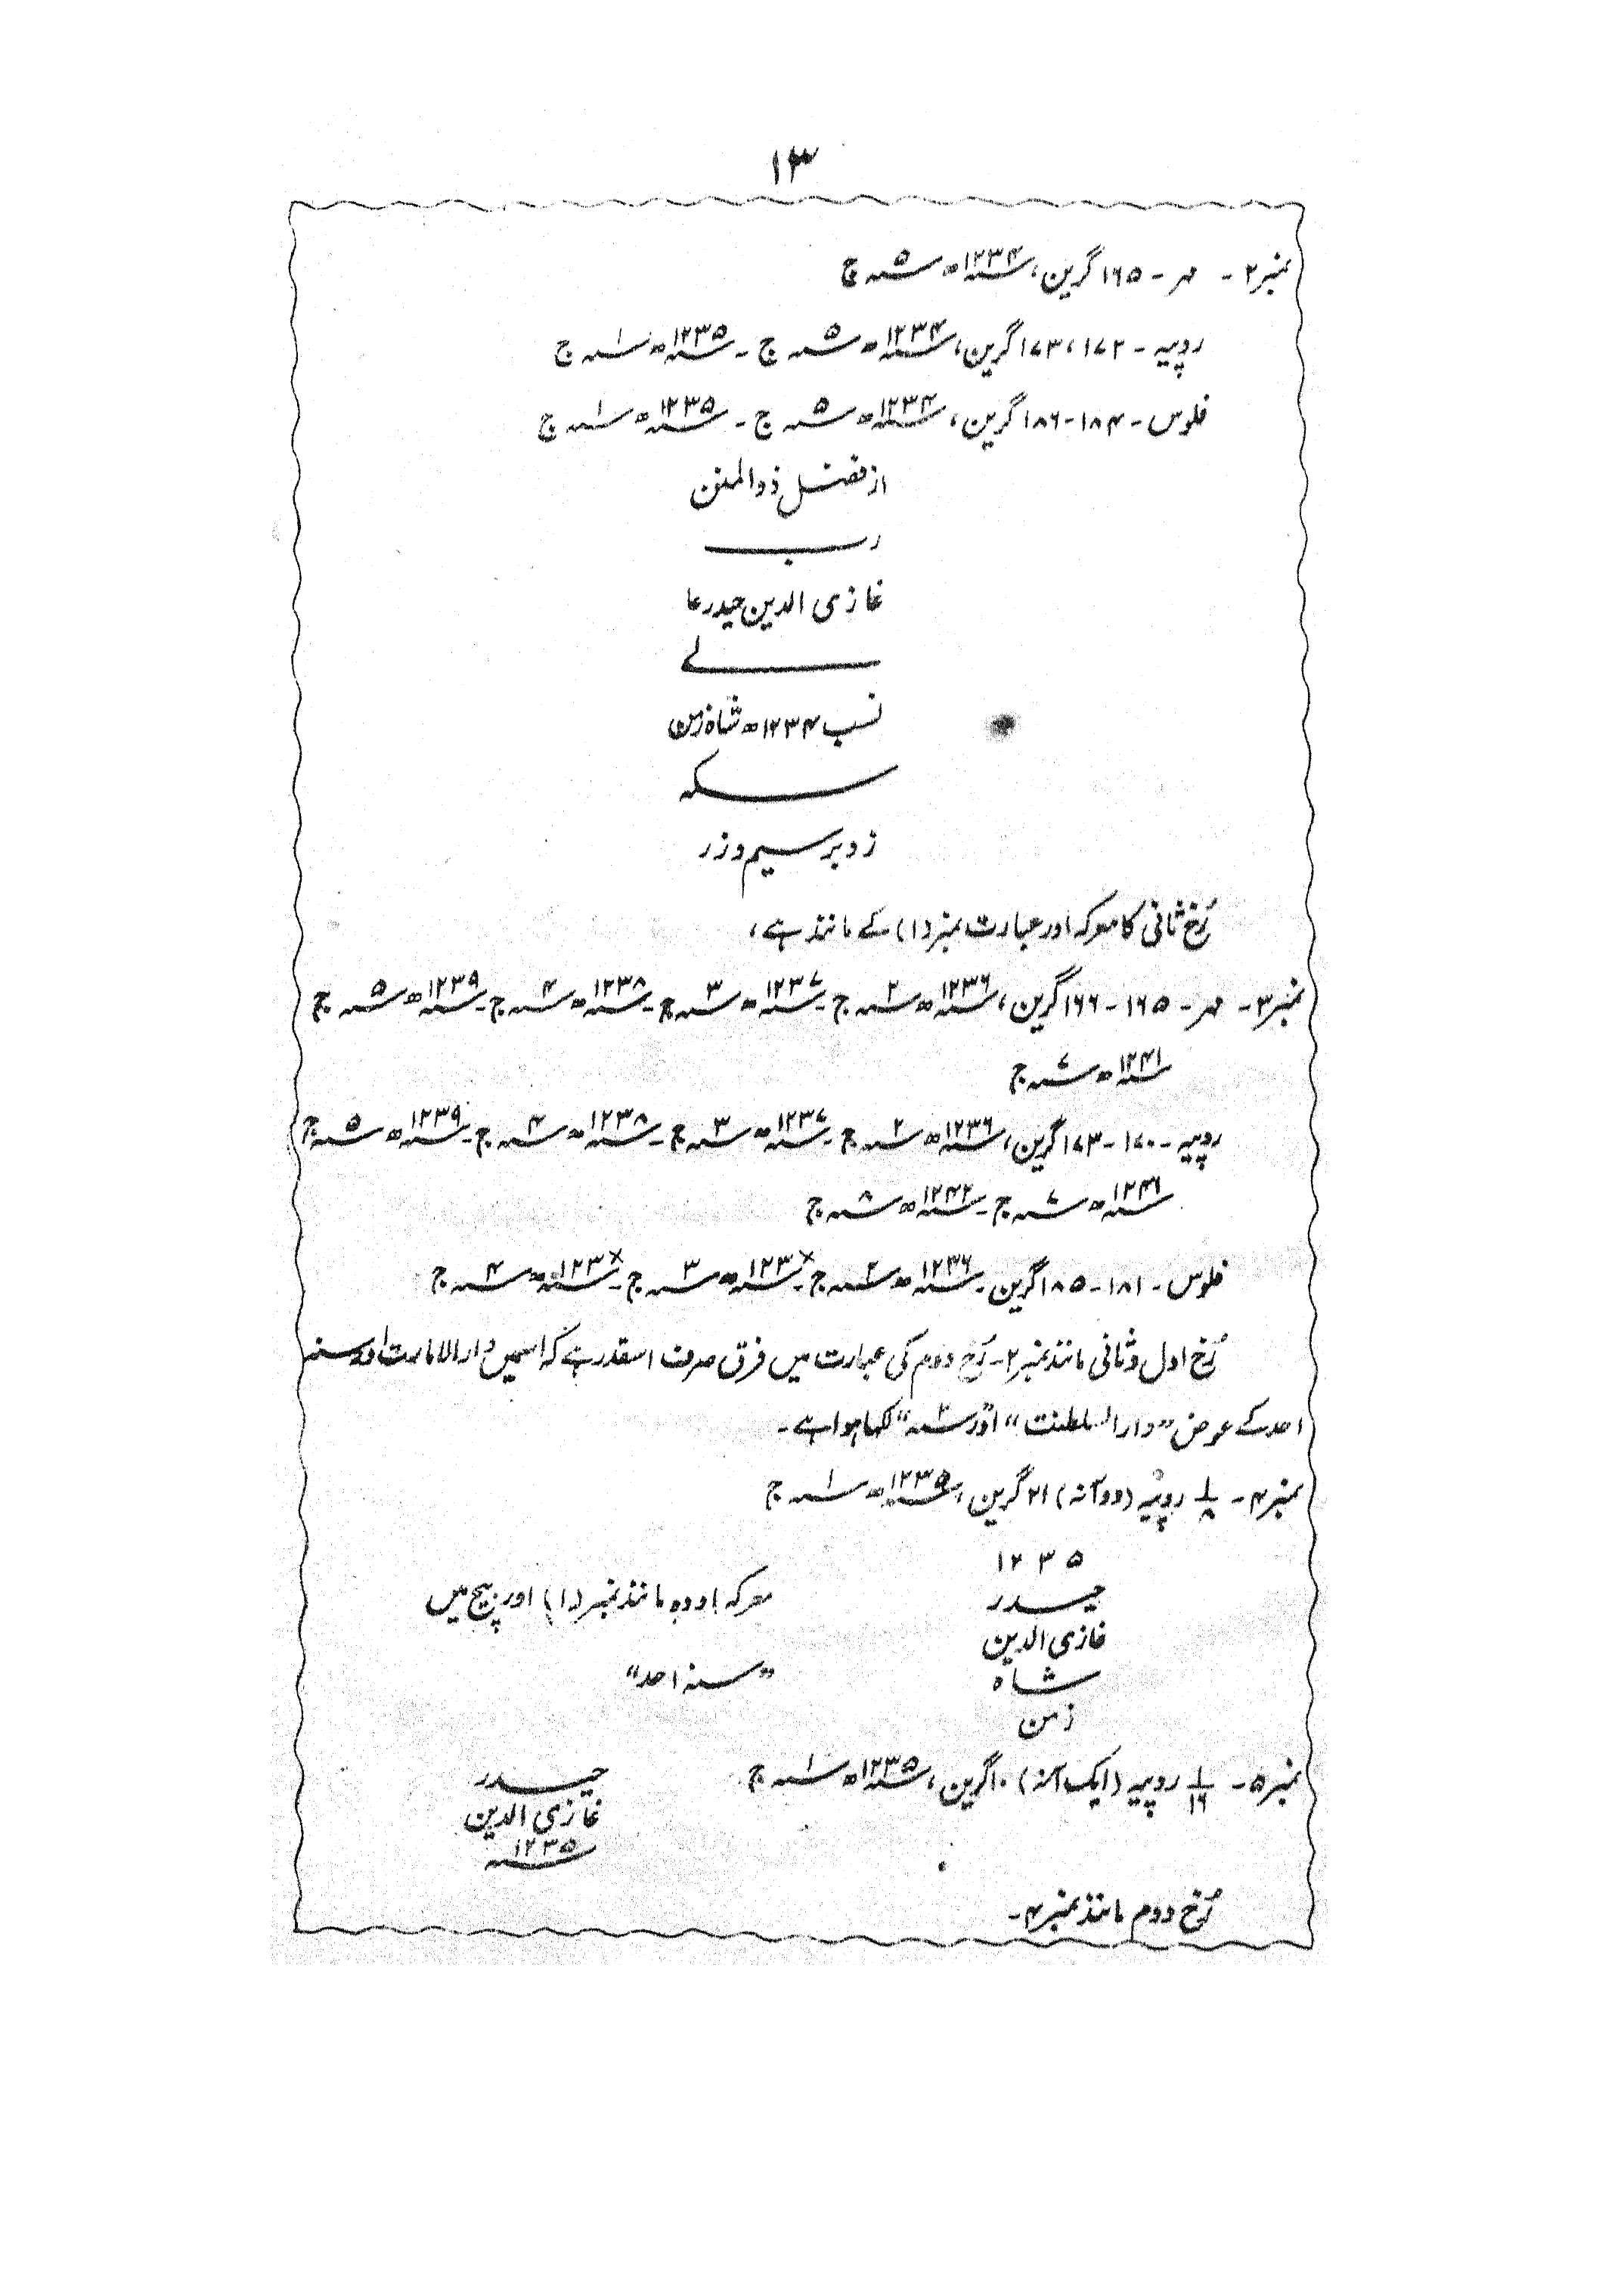 ۱۳
نمبر۲ - مہر - ۱۶۵ گرین، سنہ۱۲۳۴ھ سنہ۵ ج
روپیہ - ۱۷۲، ۱۷۳ گرین، سنہ۱۲۳۴ھ سنہ۵ ج - سنہ۱۲۳۵ھ سنہ۱ ج
فلوس - ۱۸۴-۱۸۶ گرین، سنہ۱۲۳۴ھ سنہ۵ ج - سنہ۱۲۳۵ھ سنہ۱ ج
از فضل ذوالمنن
رب
غازی الدین حیدر عا
لے
نسب ۱۲۳۴ھ شاہ زمن
سکہ
زد بر سیم و زر
رُخ ثانی کا معرکہ اور عبارت نمبر (۱) کے مانند ہے،
نمبر۳ - مہر - ۱۶۵ - ۱۶۶ گرین، سنہ۱۲۳۶ھ سنہ۲ ج - سنہ۱۲۳۷ھ سنہ۳ ج - سنہ۱۲۳۸ھ سنہ۴ ج - سنہ۱۲۳۹ھ سنہ۵ ج
سنہ۱۲۴۱ھ سنہ۷ ج
روپیہ - ۱۷۰ - ۱۷۳ گرین، سنہ۱۲۳۶ھ سنہ۲ ج - سنہ۱۲۳۷ھ سنہ۳ ج - سنہ۱۲۳۸ھ سنہ۴ ج - سنہ۱۲۳۹ھ سنہ۵ ج
سنہ۱۲۴۱ھ سنہ۷ ج - سنہ۱۲۴۲ھ سنہ۸ ج
فلوس - ۱۸۱ - ۱۸۵ گرین - سنہ۱۲۳۶ھ سنہ۲ ج - سنہ۱۲۳×ھ سنہ۳ ج - سنہ۱۲۳×ھ سنہ۴ ج
رُخ اول و ثانی مانند نمبر۲ - رُخ دوم کی عبارت میں فرق صرف اسقدر ہے کہ اسمیں دارالامارت اور سنہ
احد کے عوض "دارالسلطنت" اور "سنہ۲" لکھا ہوا ہے -
نمبر۴ - ۱/۸ روپیہ (دو آنہ) ۲۱ گرین، سنہ۱۲۳۵ھ سنہ۱ ج
۱۲۳۵
حیدر
غازی الدین
شاہ
زمن
معرکہ اودہ مانند نمبر (۱) اور بیچ میں
"سنہ احد"
نمبر۵ - ۱/۱۶ روپیہ (ایک آنہ) ۱۰ گرین، سنہ۱۲۳۵ھ سنہ۱ ج
حیدر
غازی الدین
سنہ۱۲۳۵
رُخ دوم مانند نمبر۴ -